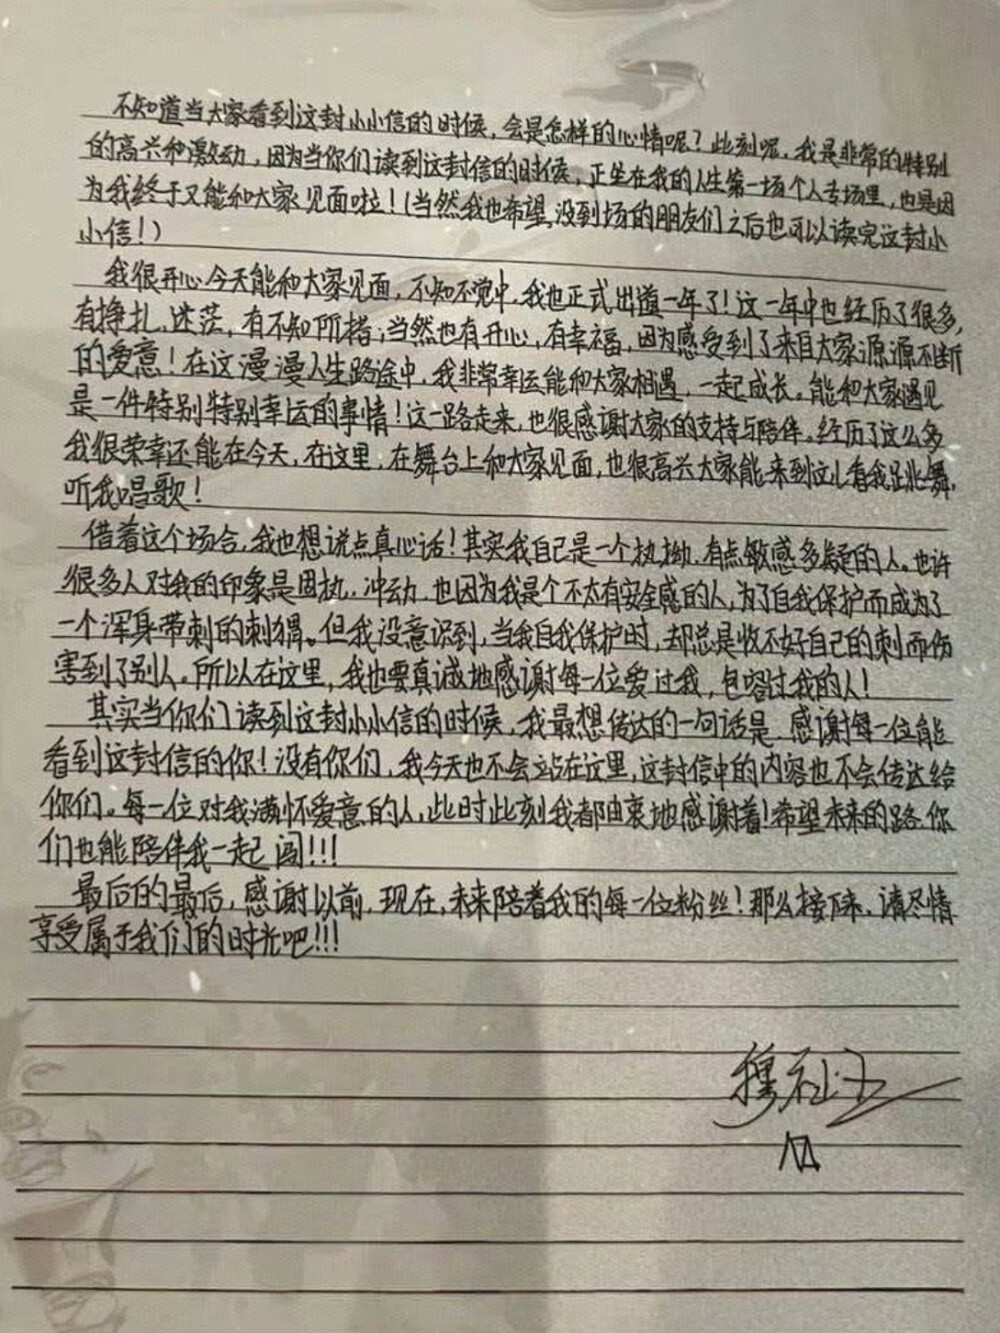 不知道当大家看到这封小小信的时候，会是怎样的心情呢？此刻呢，我是非常的特别
的高兴和激动，因为当你们读到这封信的时候，正坐在我的人生第一场个人专场里，也是因
为我终于又能和大家见面啦！（当然我也希望，没到场的朋友们之后也可以读完这封小
小信！）
我很开心今天能和大家见面，不知不觉中，我也正式出道一年了！这一年中也经历了很多，
有挣扎，迷茫，有不知所措；当然也有开心，有幸福，因为感受到了来自大家源源不断
的爱意！在这漫漫人生路途中，我非常幸运能和大家相遇，一起成长。能和大家遇见
是一件特别特别幸运的事情！这一路走来，也很感谢大家的支持与陪伴。经历了这么多
我很荣幸还能在今天，在这里，在舞台上和大家见面，也很高兴大家能来到这儿看我跳舞，
听我唱歌！
借着这个场合，我也想说点真心话！其实我自己是一个执拗，有点敏感多疑的人。也许
很多人对我的印象是固执，冲动，也因为我是个不太有安全感的人，为了自我保护而成为了
一个浑身带刺的刺猬。但我没意识到，当我自我保护时，却总是收不好自己的刺而伤
害到了别人。所以在这里，我也要真诚地感谢每一位爱过我，包容过我的人！
其实当你们读到这封小小信的时候，我最想传达的一句话是，感谢每一位能
看到这封信的你！没有你们，我今天也不会站在这里，这封信中的内容也不会传达给
你们。每一位对我满怀爱意的人，此时此刻我都由衷地感谢着！希望未来的路，你
们也能陪伴我一起闯！！！
最后的最后，感谢以前，现在，未来陪着我的每一位粉丝！那么接下来，请尽情
享受属于我们的时光吧！！！
穆祉丞